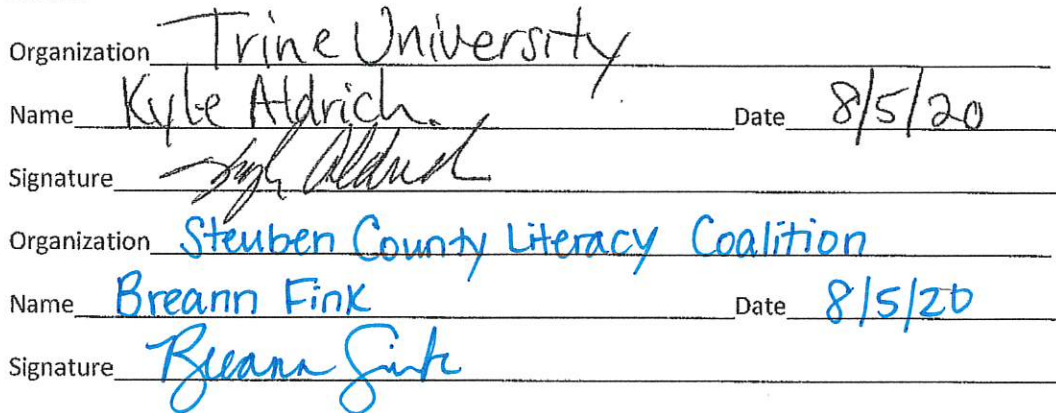 Organization Trine University
Name Kyle Aldrich. Date 8/5/20
Signature Kyle Aldrich
Organization Steuben County Literacy Coalition
Name Breann Fink Date 8/5/20
Signature Breann Fink